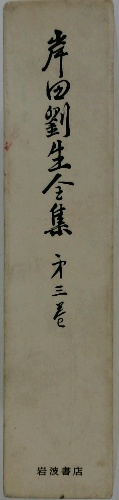 岸田劉生全集
第三巻
岩波書店